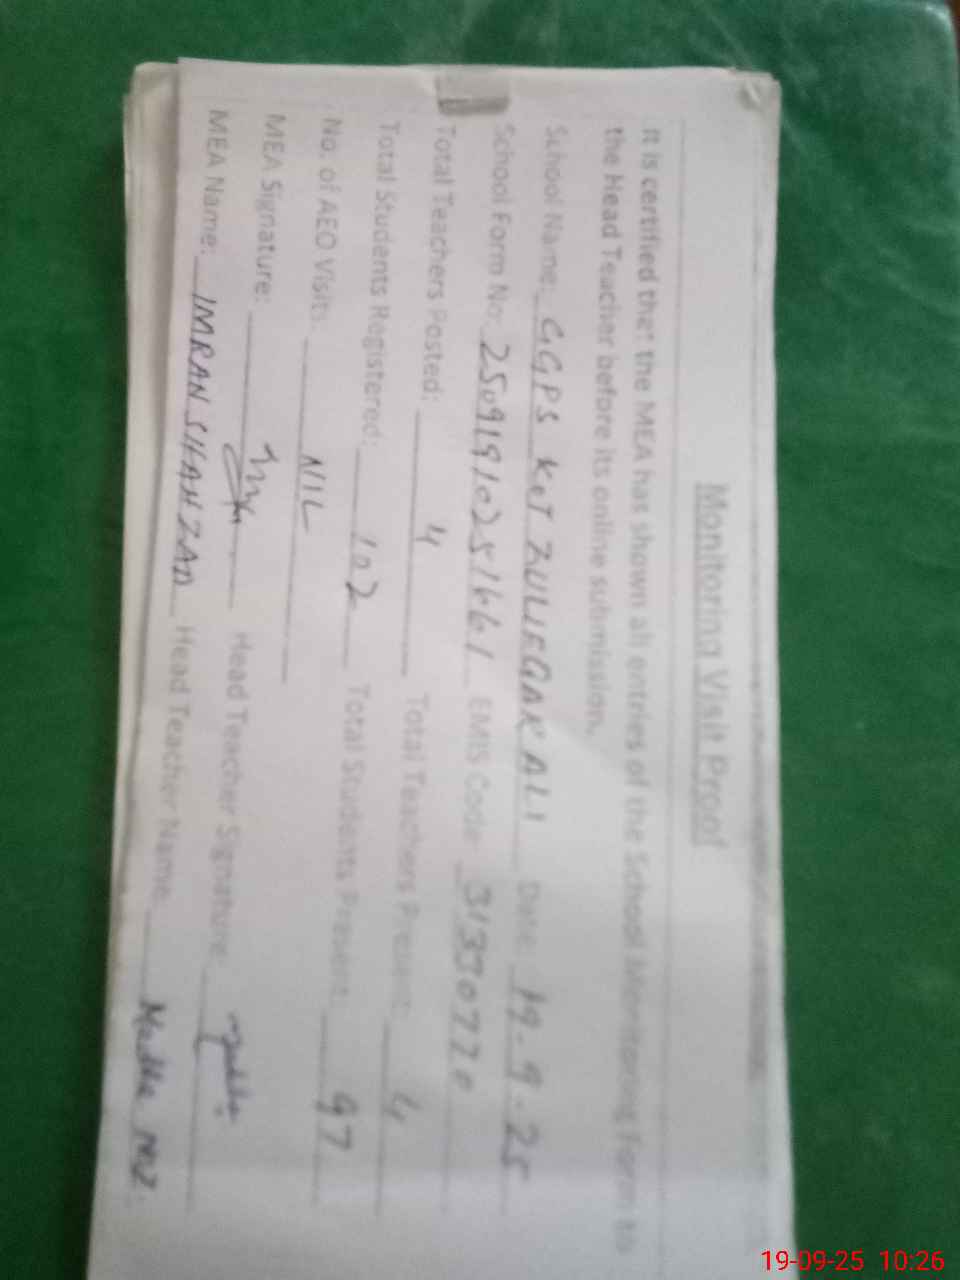 Monitoring Visit Proof
It is certified that the MEA has shown all entries of the School Monitoring Form to
the Head Teacher before its online submission.
School Name: GGPS KOT ZULIFGAR ALI Date: 19-9-25
School Form No: 25091910251661 EMIS Code: 31330770
Total Teachers Posted: 4 Total Teachers Present: 4
Total Students Registered: 102 Total Students Present: 97
No. of AEO Visits: NIL
MEA Signature: Head Teacher Signature:
MEA Name: IMRAN SHAHZAD Head Teacher Name:
19-09-25 10:26